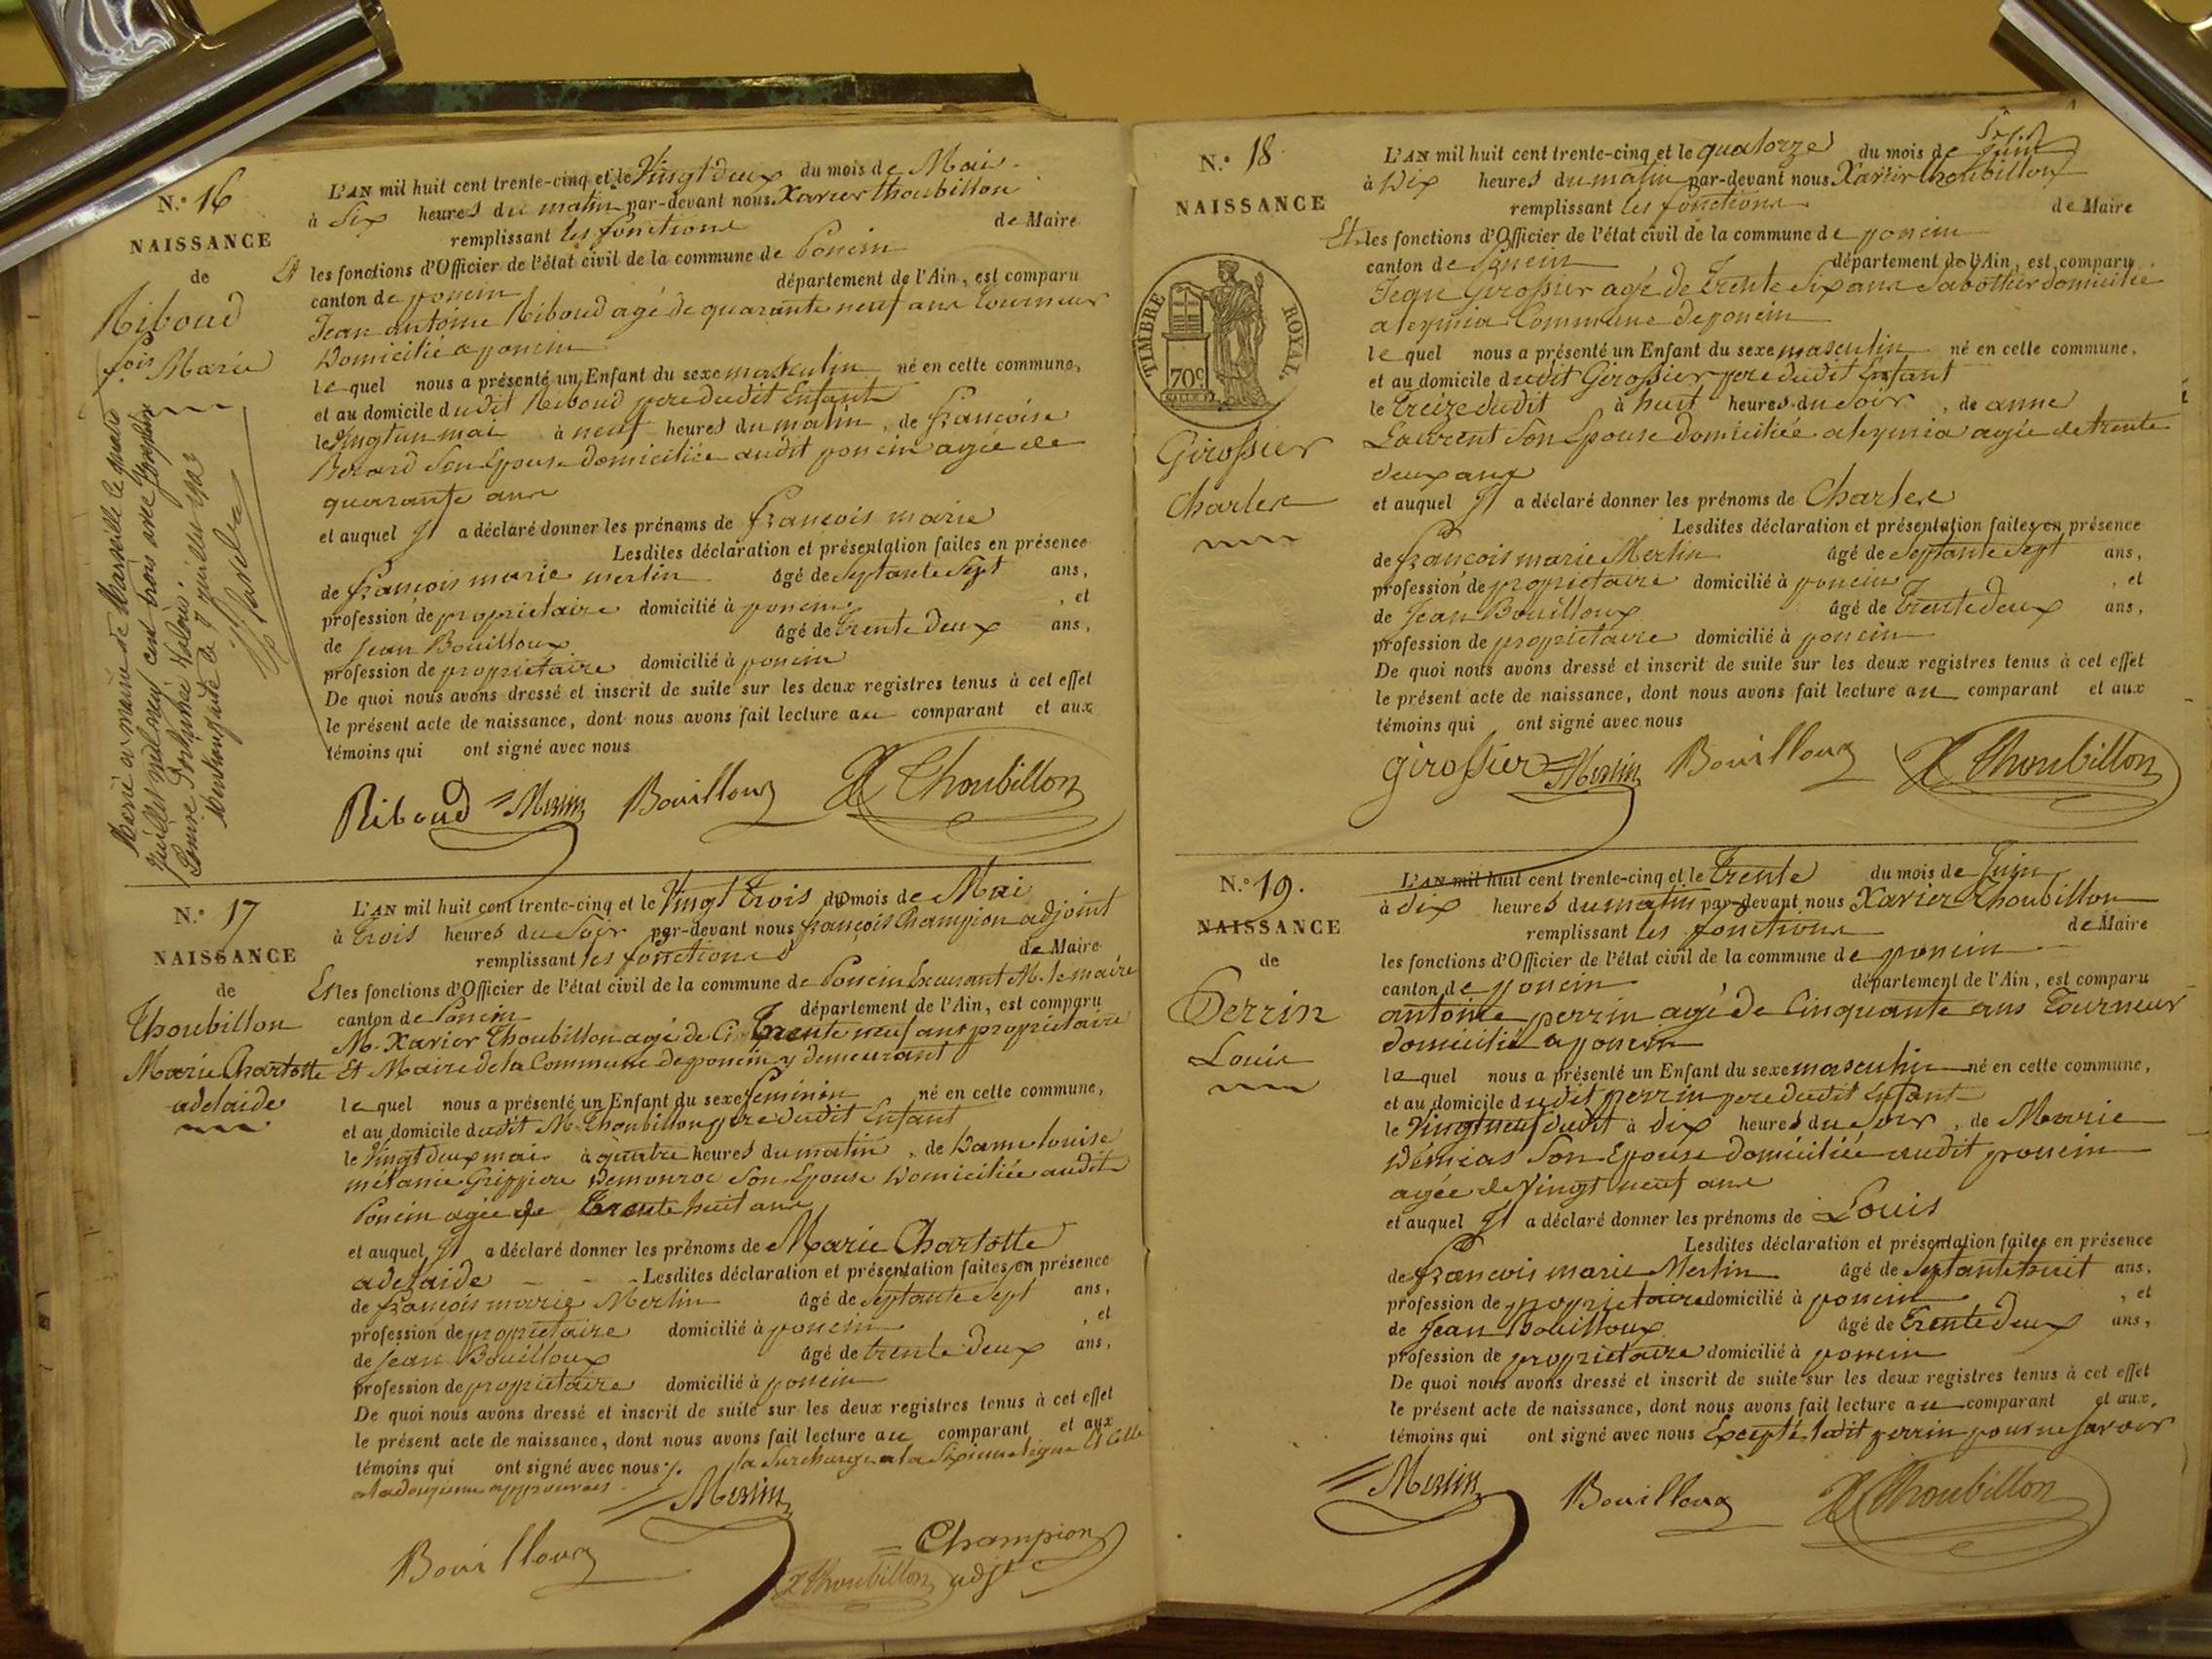 N.° 16
NAISSANCE
de
Riboud
fois Marie
Marié à la mairie de Marseille le quatre
juillet mil neuf cent trois avec Joséphine
Louise
le 9 juillet 1903
L'AN mil huit cent trente-cinq et le Vingt deux du mois de Mai
à Six heures du matin par-devant nous Xavier Thoubillon
remplissant les fonctions de Maire
Et les fonctions d'Officier de l'état civil de la commune de Poncin
canton de poncin département de l'Ain, est comparu
Jean antoine Riboud agé de quarante neuf ans tourneur
Domicilié a poncin
le quel nous a présenté un Enfant du sexe masculin né en cette commune,
et au domicile dudit Riboud pere dudit Enfant
le vingt un mai à neuf heures du matin, de francoise
Berard Son Epouse domiciliée audit poncin agée de
quarante ans
et auquel Il a déclaré donner les prénoms de françois marie
Lesdites déclaration et présentation faites en présence
de françois marie merlin âgé de Septante Sept ans,
profession de proprietaire domicilié à poncin, et
de Jean Bouilloux âgé de trente Deux ans,
profession de proprietaire domicilié à poncin
De quoi nous avons dressé et inscrit de suite sur les deux registres tenus à cet effet
le présent acte de naissance, dont nous avons fait lecture au comparant et aux
témoins qui ont signé avec nous
Riboud Merlin Bouilloux X Thoubillon
N.° 17
NAISSANCE
de
Thoubillon
Marie Charlotte
adelaide
L'AN mil huit cent trente-cinq et le Vingt trois du mois de Mai
à trois heures du Soir par-devant nous françois Champion adjoint
remplissant les fonctions de Maire
Et les fonctions d'Officier de l'état civil de la commune de Poncin Excusant M. le maire
canton de Poncin département de l'Ain, est comparu
M. Xavier Thoubillon agé de trente neuf ans proprietaire
Et Maire de la Commune de poncin y demeurant
le quel nous a présenté un Enfant du sexe feminin né en cette commune,
et au domicile dudit M. Thoubillon pere dudit Enfant
le Vingt deux mai à quatre heures du matin, de Dame louise
melanie Grippiere Demonroc Son Epouse Domiciliée audit
Poncin agée de trente huit ans
et auquel Il a déclaré donner les prénoms de Marie Charlotte
adelaide - - - Lesdites déclaration et présentation faites en présence
de françois marie Merlin âgé de Septante Sept ans,
profession de proprietaire domicilié à poncin, et
de Jean Bouilloux âgé de trente Deux ans,
profession de proprietaire domicilié à poncin
De quoi nous avons dressé et inscrit de suite sur les deux registres tenus à cet effet
le présent acte de naissance, dont nous avons fait lecture au comparant et aux
témoins qui ont signé avec nous /. la Surcharge a la Sixieme ligne Et Celle
a la douzieme approuvées
Merlin
Bouilloux Champion
X Thoubillon adjt
N.° 18
NAISSANCE
TIMBRE ROYAL.
70c
Girossier
Charles
L'AN mil huit cent trente-cinq et le quatorze du mois de Juin
à Dix heures du matin par-devant nous Xavier Thoubillon
remplissant les fonctions de Maire
Et les fonctions d'Officier de l'état civil de la commune de poncin
canton de Poncin département de l'Ain, est comparu
Jean Girossier agé de trente Six ans Sabottier domicilié
a leymia Commune de poncin
le quel nous a présenté un Enfant du sexe masculin né en cette commune,
et au domicile dudit Girossier pere dudit Enfant
le treize dudit à huit heures du Soir, de anne
Laurent Son Epouse domiciliée a leymia agée de trente
deux ans
et auquel Il a déclaré donner les prénoms de Charles
Lesdites déclaration et présentation faites en présence
de françois marie Merlin âgé de Septante Sept ans,
profession de proprietaire domicilié à poncin, et
de Jean Bouilloux âgé de trente deux ans,
profession de proprietaire domicilié à poncin
De quoi nous avons dressé et inscrit de suite sur les deux registres tenus à cet effet
le présent acte de naissance, dont nous avons fait lecture au comparant et aux
témoins qui ont signé avec nous
girossier Merlin Bouilloux X Thoubillon
N.° 19.
NAISSANCE
de
Perrin
Louis
L'AN mil huit cent trente-cinq et le trente du mois de Juin
à dix heures du matin par-devant nous Xavier Thoubillon
remplissant les fonctions de Maire
les fonctions d'Officier de l'état civil de la commune de poncin
canton de poncin département de l'Ain, est comparu
antoine perrin agé de Cinquante ans tourneur
domicilié a poncin
le quel nous a présenté un Enfant du sexe masculin né en cette commune,
et au domicile dudit perrin pere dudit Enfant
le Vingt neuf dudit à dix heures du Soir, de Marie
Demias Son Epouse domiciliée audit poncin
agée de Vingt neuf ans
et auquel Il a déclaré donner les prénoms de Louis
Lesdites déclaration et présentation faites en présence
de françois marie Merlin âgé de Septante huit ans,
profession de proprietaire domicilié à poncin, et
de Jean Bouilloux âgé de trente Deux ans,
profession de proprietaire domicilié à poncin
De quoi nous avons dressé et inscrit de suite sur les deux registres tenus à cet effet
le présent acte de naissance, dont nous avons fait lecture au comparant et aux
témoins qui ont signé avec nous Excepté ledit perrin pour ne savoir
Merlin Bouilloux X Thoubillon